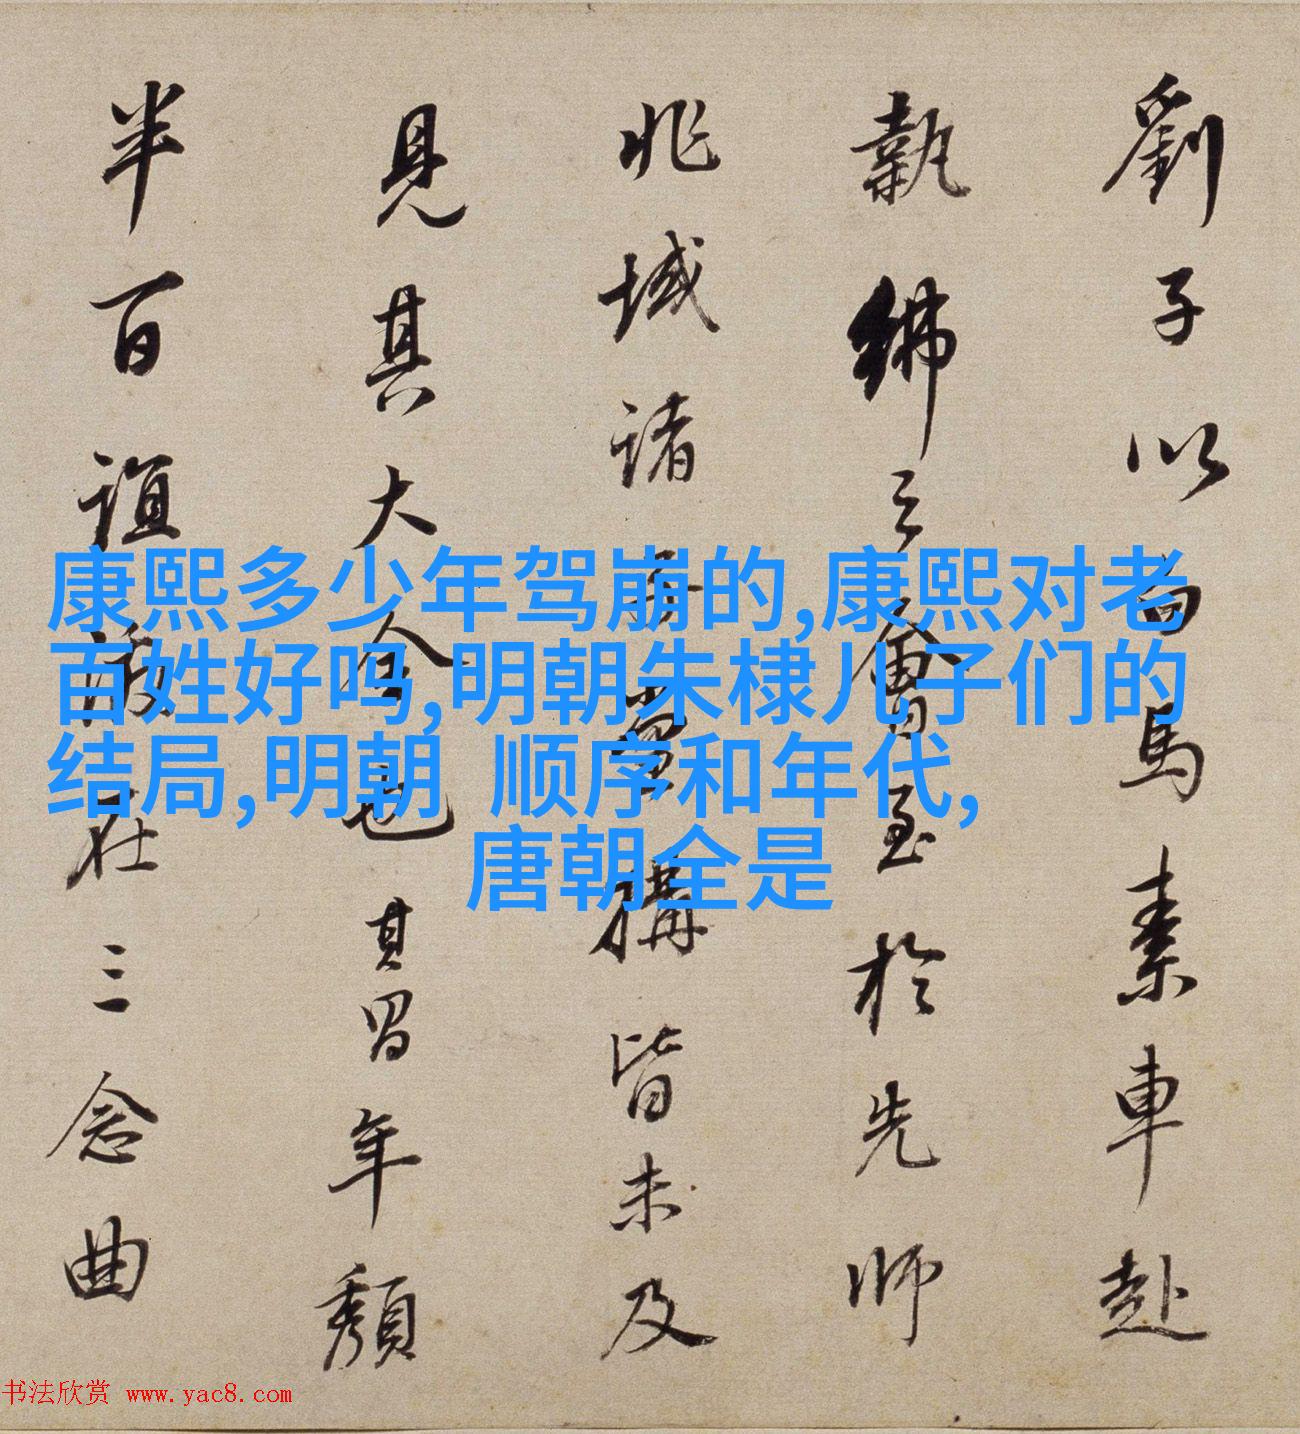 劉子以白馬素車赴
執紼之會自至於先師
兆域諸
構皆未及
見其大全也其眉年頹
半百誼
在三念曲
康熙多少年驾崩的,康熙对老
百姓好吗,明朝朱棣儿子们的
结局,明朝 顺序和年代,
唐朝全是
书法欣赏 www.yac8.com